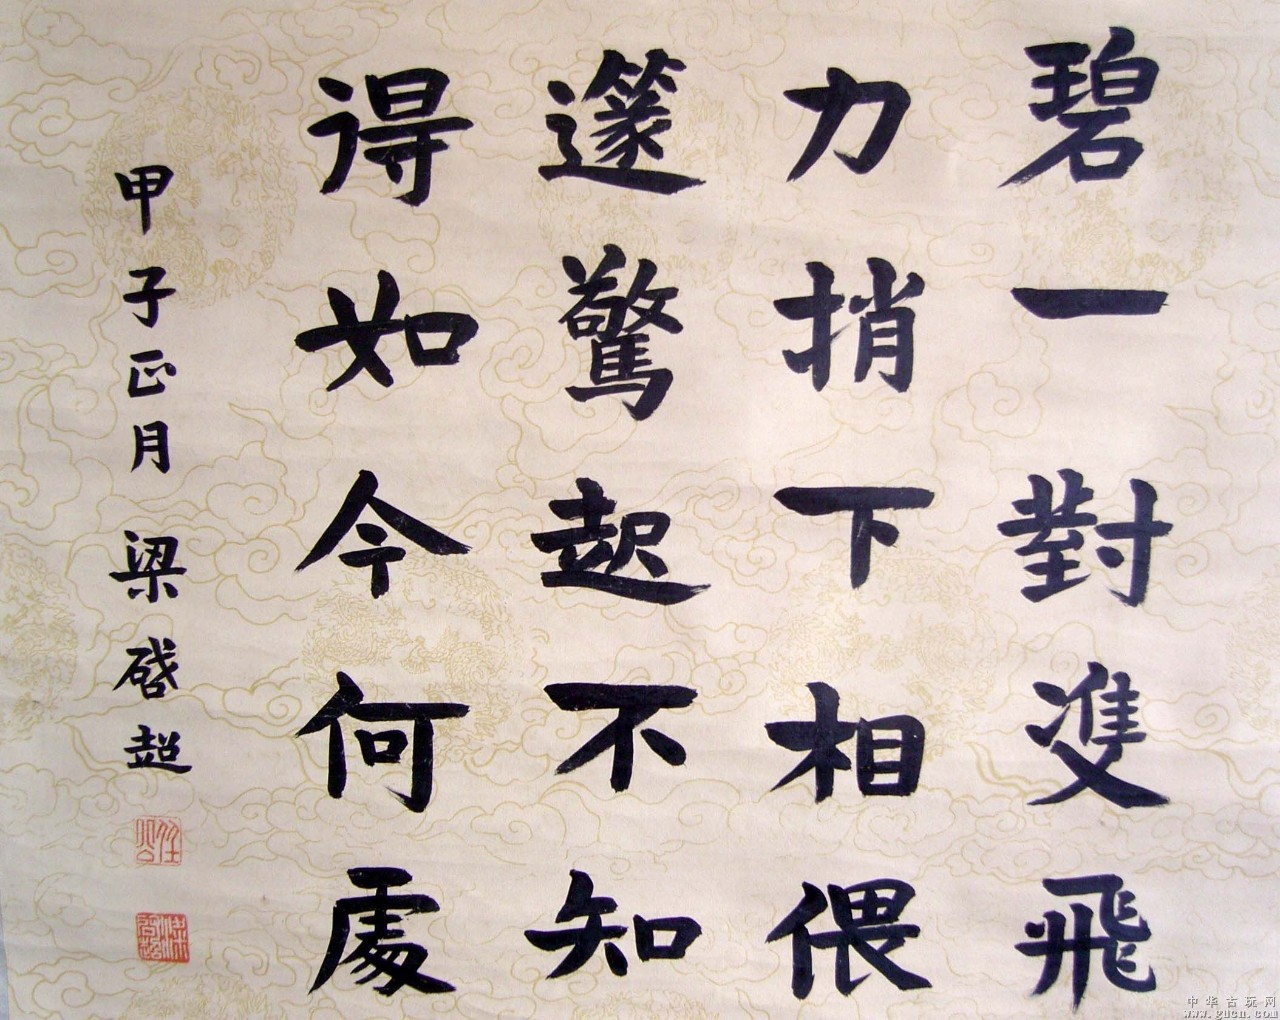 碧一對雙飛
力捎下相偎
籧驚起不知
得如今何處
甲子正月 梁啓超
任公
梁啓超
中华古玩网
www.gucn.com